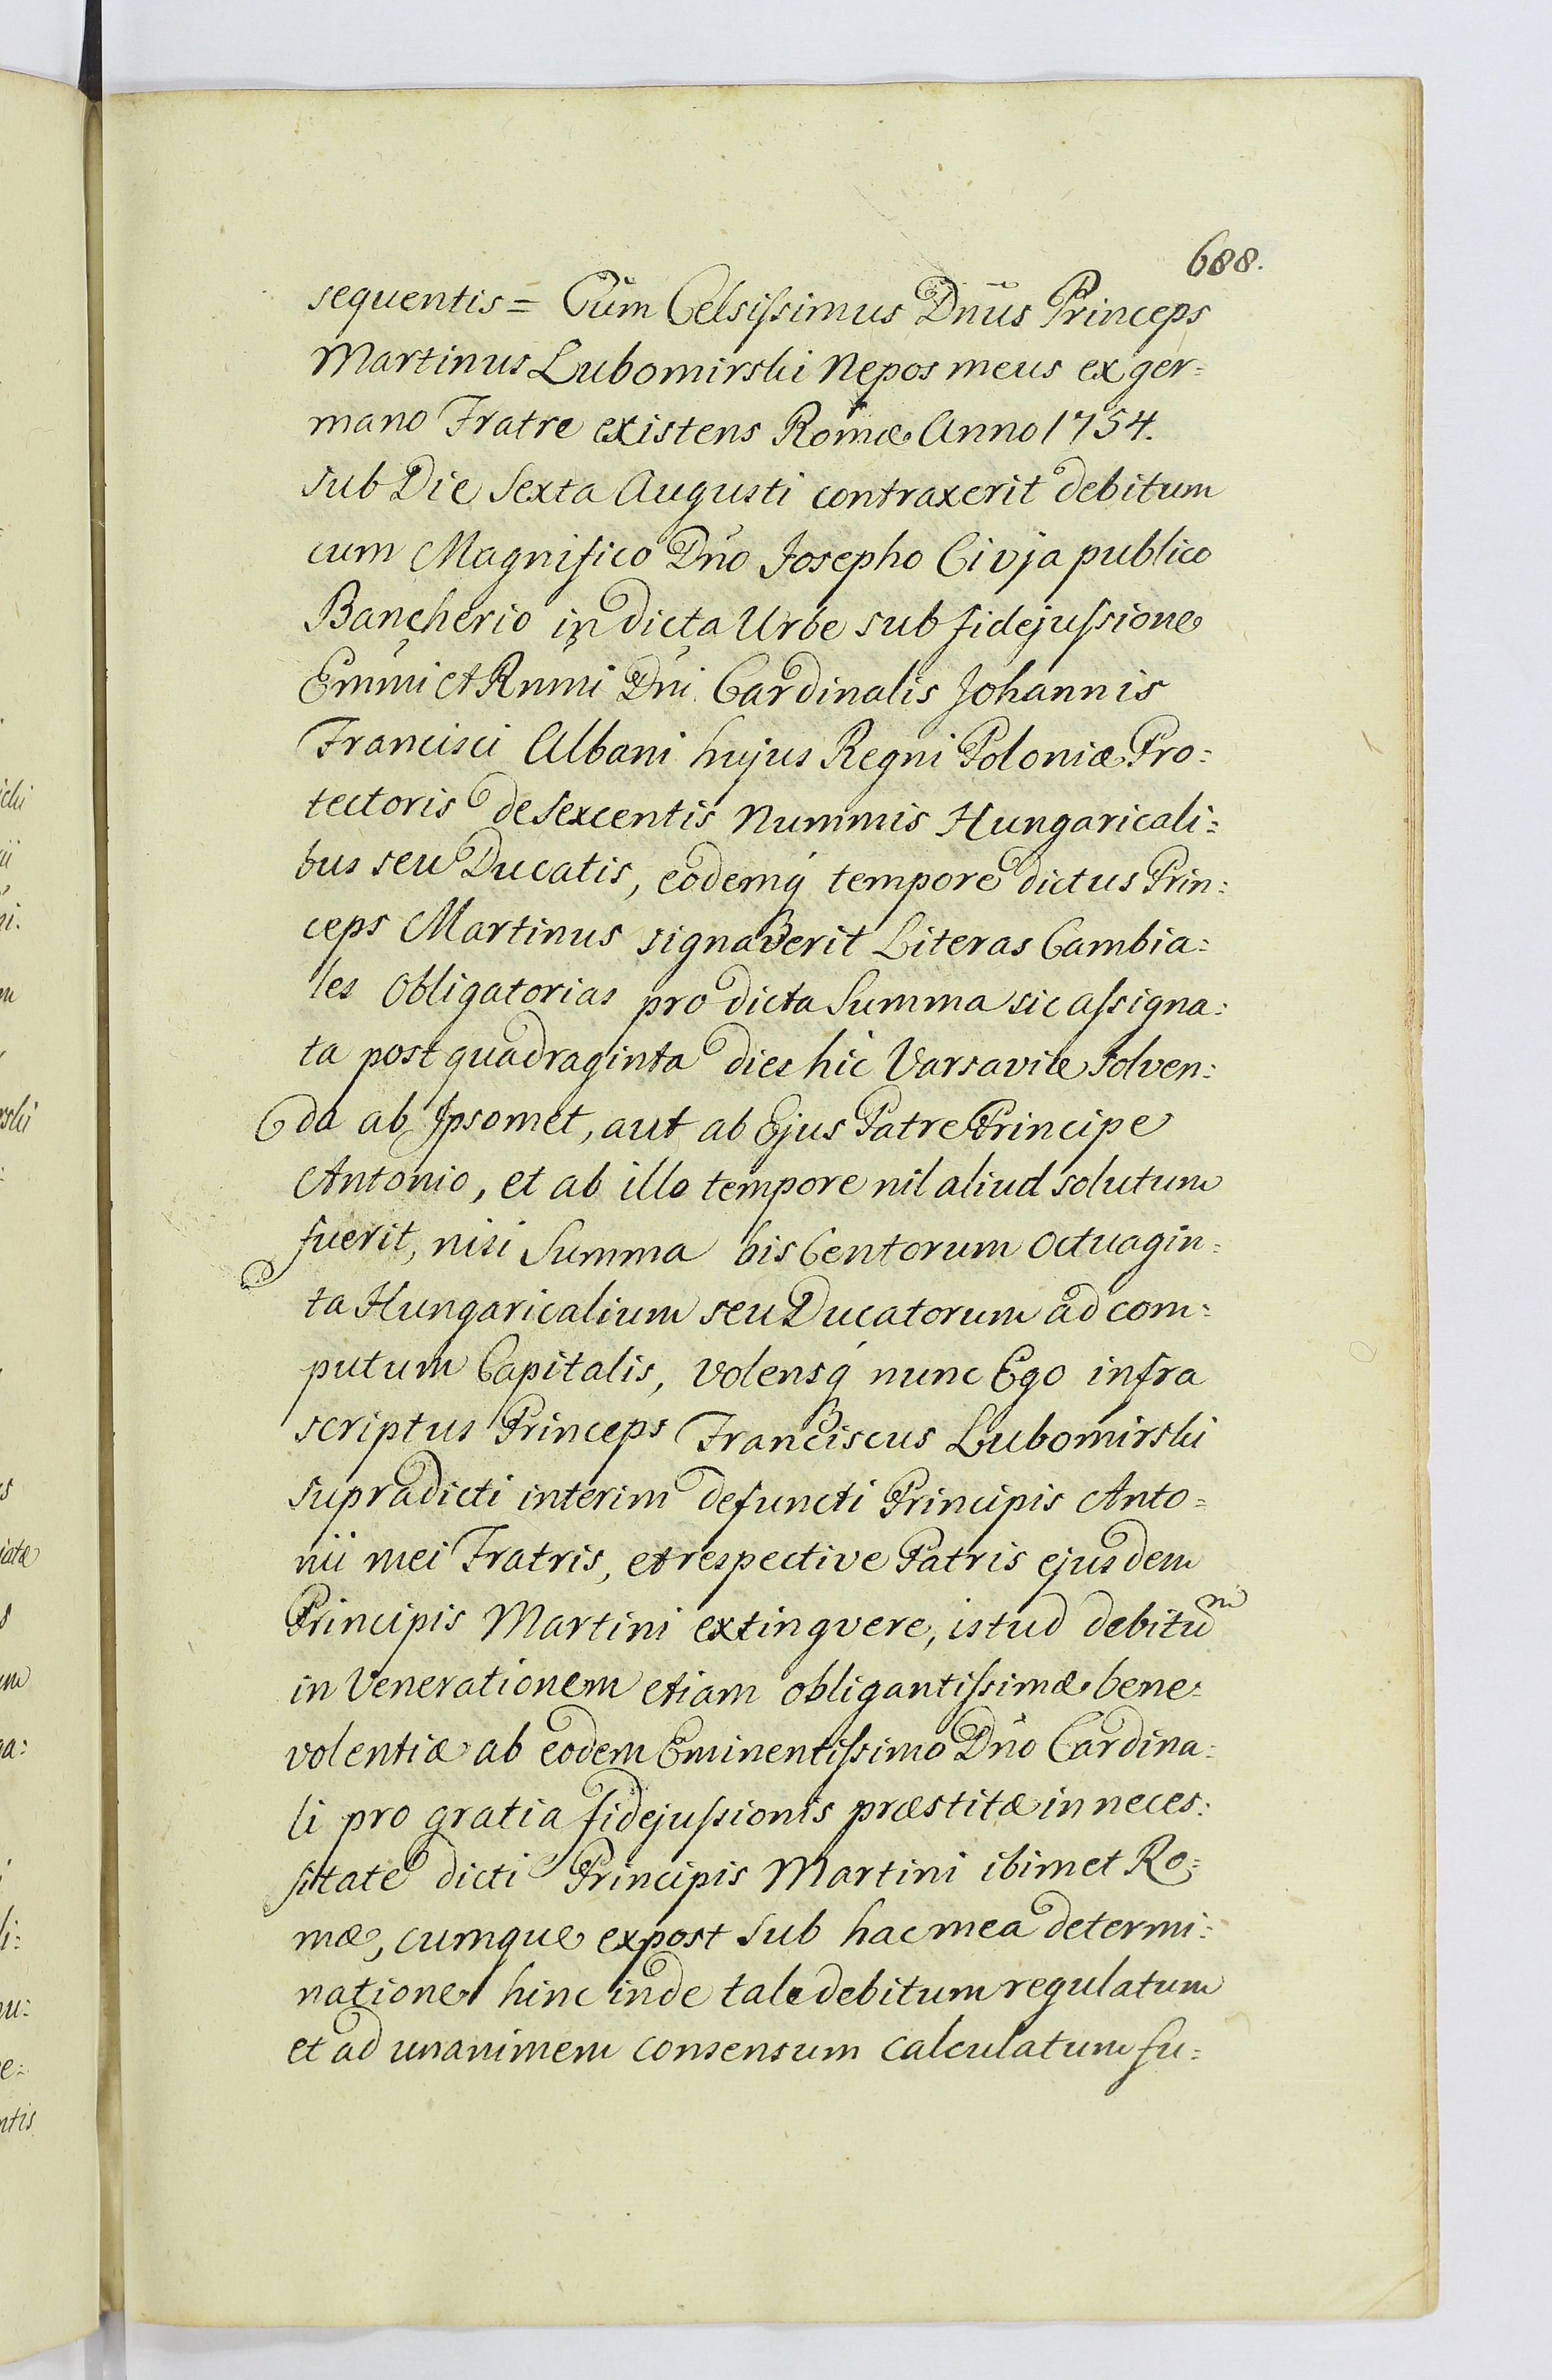 688.
sequentis = Cum Celsiſsimus Dnus Princeps
Martinus Lubomirski Nepos meus ex ger=
mano Fratre existens Romæ Anno 1754.
sub Die Sexta Augusti contraxerit debitum
cum Magnifico Dno Josepho Civja publico
Bancherio in dicta Urbe sub fidejuſsione
Emmi et Rnmi Dni Cardinalis Johannis
Francisci Albani hujus Regni Poloniæ Pro=
tectoris de Sexcentis Nummis Hungaricali=
bus seu Ducatis, eodemq́ tempore dictus Prin=
ceps Martinus signaverit Literas Cambia=
les Obligatorias pro dicta Summa sic aſsigna=
ta post quadraginta dies hic Varsaviæ solven=
da ab Ipsomet, aut ab Ejus Patre Principe
Antonio, et ab illo tempore nil aliud solutum
fuerit, nisi Summa bis Centorum Octuagin=
ta Hungaricalium seu Ducatorum ad com=
putum Capitalis, volensq́ nunc Ego infra
scriptus Princeps Franciscus Lubomirski
supradicti interim defuncti Principis Anto=
nii mei Fratris, et respective Patris ejusdem
Principis Martini extingvere, istud debitum
in Venerationem etiam obligantiſsimæ bene=
volentiæ ab eodem Eminentiſsimo Dno Cardina=
li pro gratia fidejuſsionis præstitæ in neces=
sitate dicti Principis Martini ibimet Ro=
mæ, cumque expost sub hac mea determi=
natione hinc inde tale debitum regulatum
et ad unanimem consensum calculatum fu=